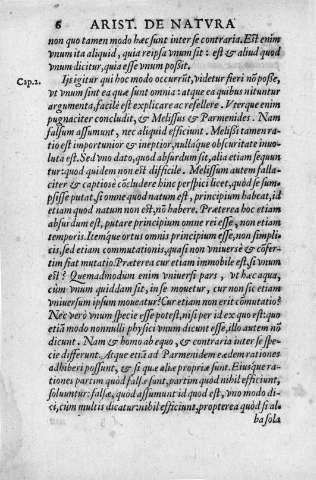 6 ARIST. DE NATVRA
non quo tamen modo hæc sunt inter se contraria. Est enim
vnum ita aliquid, quia reipsa vnum sit: est & aliud quod
vnum dicitur, quia esse vnum possit.
Cap.2. Iis igitur qui hoc modo occurrūt, videtur fieri nō posse,
vt vnum sint ea quæ sunt omnia: atque ea quibus nituntur
argumenta, facile est explicare ac refellere. Vterque enim
pugnaciter concludit, & Melissus & Parmenides. Nam
falsum assumunt, nec aliquid efficiunt. Melissi tamen ra-
tio est importunior & ineptior, nullaque obscuritate inuo-
luta est. Sed vno dato, quod absurdum sit, alia etiam sequun
tur: quod quidem non est difficile. Melissum autem falla-
citer & captiosè cōcludere hinc perspici licet, quòd se sum-
psisse putat, si omne quod natum est, principium habeat, id
etiam quod natum non est, nō habere. Præterea hoc etiam
absurdum est, putare principium omne rei esse, non etiam
temporis. Itemque ortus omnis principium esse, non simpli-
tis, sed etiam commutationis, quasi non vniuersè & cōfer-
tim fiat mutatio. Præterea cur etiam immobile est, si vnum
est? Quemadmodum enim vniuersi pars, vt hæc aqua,
cùm vnum quiddam sit, in se mouetur, cur non sic etiam
vniuersum ipsum moueatur? Cur etiam non erit cōmutatio?
Nec verò vnum specie esse potest, nisi per id ex quo est: quo
etiā modo nonnulli physici vnum dicunt esse, illo autem nō
dicunt. Nam & homo ab equo, & contraria inter se spe-
cie differunt. Atque etiā ad Parmenidem eædem rationes
adhiberi possunt, & si quæ aliæ propriæ sunt. Eiusque ra-
tiones partim quòd falsæ sunt, partim quòd nihil efficiunt,
soluuntur: falsæ, quòd assumunt id quod est, vno modo di-
ci, cùm multis dicatur: nihil efficiunt, propterea quòd si al-
ba sola